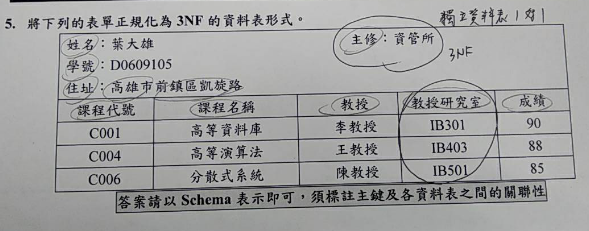 5. 將下列的表單正規化為 3NF 的資料表形式。
獨立資料表 1對1
姓名：葉大雄 主修：資管所
3NF
學號：D0609105
住址：高雄市前鎮區凱旋路
課程代號 課程名稱 教授 教授研究室 成績
C001 高等資料庫 李教授 IB301 90
C004 高等演算法 王教授 IB403 88
C006 分散式系統 陳教授 IB501 85
答案請以 Schema 表示即可，須標註主鍵及各資料表之間的關聯性